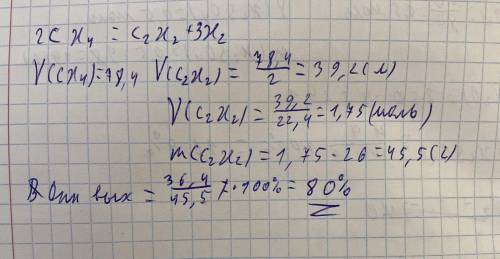 2CH₄ = C₂H₂ + 3H₂
V(CH₄)=78,4 V(C₂H₂) = 78,4/2 = 39,2(л)
V(C₂H₂) = 39,2/22,4 = 1,75(моль)
m(C₂H₂) = 1,75 · 26 = 45,5(г)
вых = 36,4/45,5 · 100% = 80%